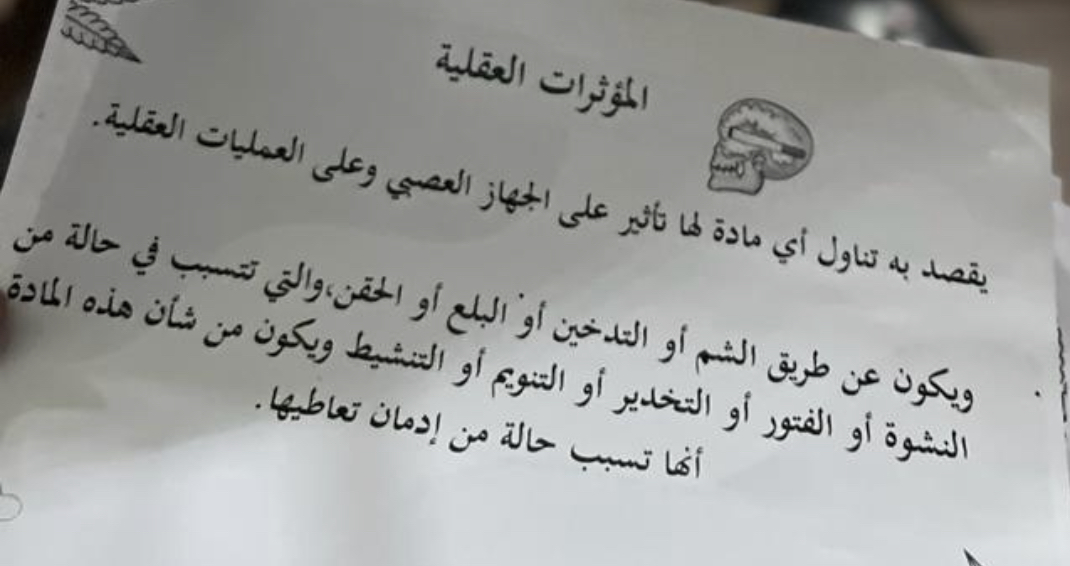 المؤثرات العقلية
يقصد به تناول أي مادة لها تأثير على الجهاز العصبي وعلى العمليات العقلية.
ويكون عن طريق الشم أو التدخين أو البلع أو الحقن،والتي تتسبب في حالة من
النشوة أو الفتور أو التخدير أو التنويم أو التنشيط ويكون من شأن هذه المادة
أنها تسبب حالة من إدمان تعاطيها.